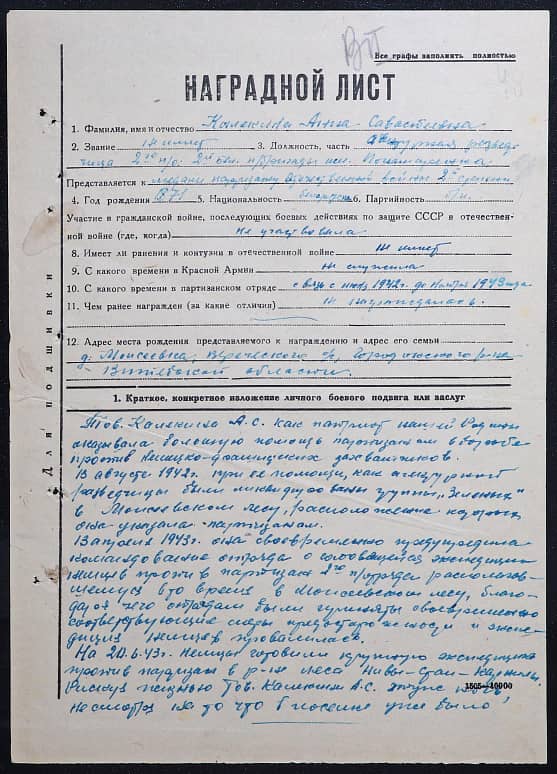 Все графы заполнить полностью
НАГРАДНОЙ ЛИСТ
1. Фамилия, имя и отчество Калекина Анна Савастеевна
2. Звание не имеет 3. Должность, часть развед-
чица 2го п/о 2й бел. п/бригады им. Пономаренко
Представляется к награждению Отечественной войны 2й степени
4. Год рождения 1871 5. Национальность белорусска 6. Партийность б/п.
Участие в гражданской войне, последующих боевых действиях по защите СССР в отечествен-
ной войне (где, когда) не участвовала
8. Имеет ли ранения и контузии в отечественной войне не имеет
9. С какого времени в Красной Армии не служила
10. С какого времени в партизанском отряде связь с 1942г. до ноября 1943 года
11. Чем ранее награжден (за какие отличия) не награждалась.
12. Адрес места рождения представляемого к награждению и адрес его семьи
д. Моисеевка, Вереческого с/с, Городокского р-на
Витебской области.
Для подшивки
1. Краткое, конкретное изложение личного боевого подвига или заслуг
Тов. Калекина А.С. как патриот нашей Родины
оказывала большую помощь партизанам в борьбе
против немецко-фашистских захватчиков.
В августе 1942г. при её помощи, как агентурной
разведчицы были ликвидированы группы "Зеленых"
в Моисеевском лесу, расположение которых
она указала партизанам.
В апреле 1943г. она своевременно предупредила
командование отряда о готовящейся экспедиции
немцев против партизан 2го п/отряда располагав-
шемуся в то время в Моисеевском лесу, благо-
даря чего отрядом были приняты своевременно
соответствующие меры предосторожности и экспе-
диция немцев провалилась.
На 20.6.43г. немцы готовили крупную экспедицию
против партизан в р-не леса Нивы-Стан-
Рискуя жизнью Тов. Калекина А.С.
несмотря на то что в поселке уже было
1505—10000